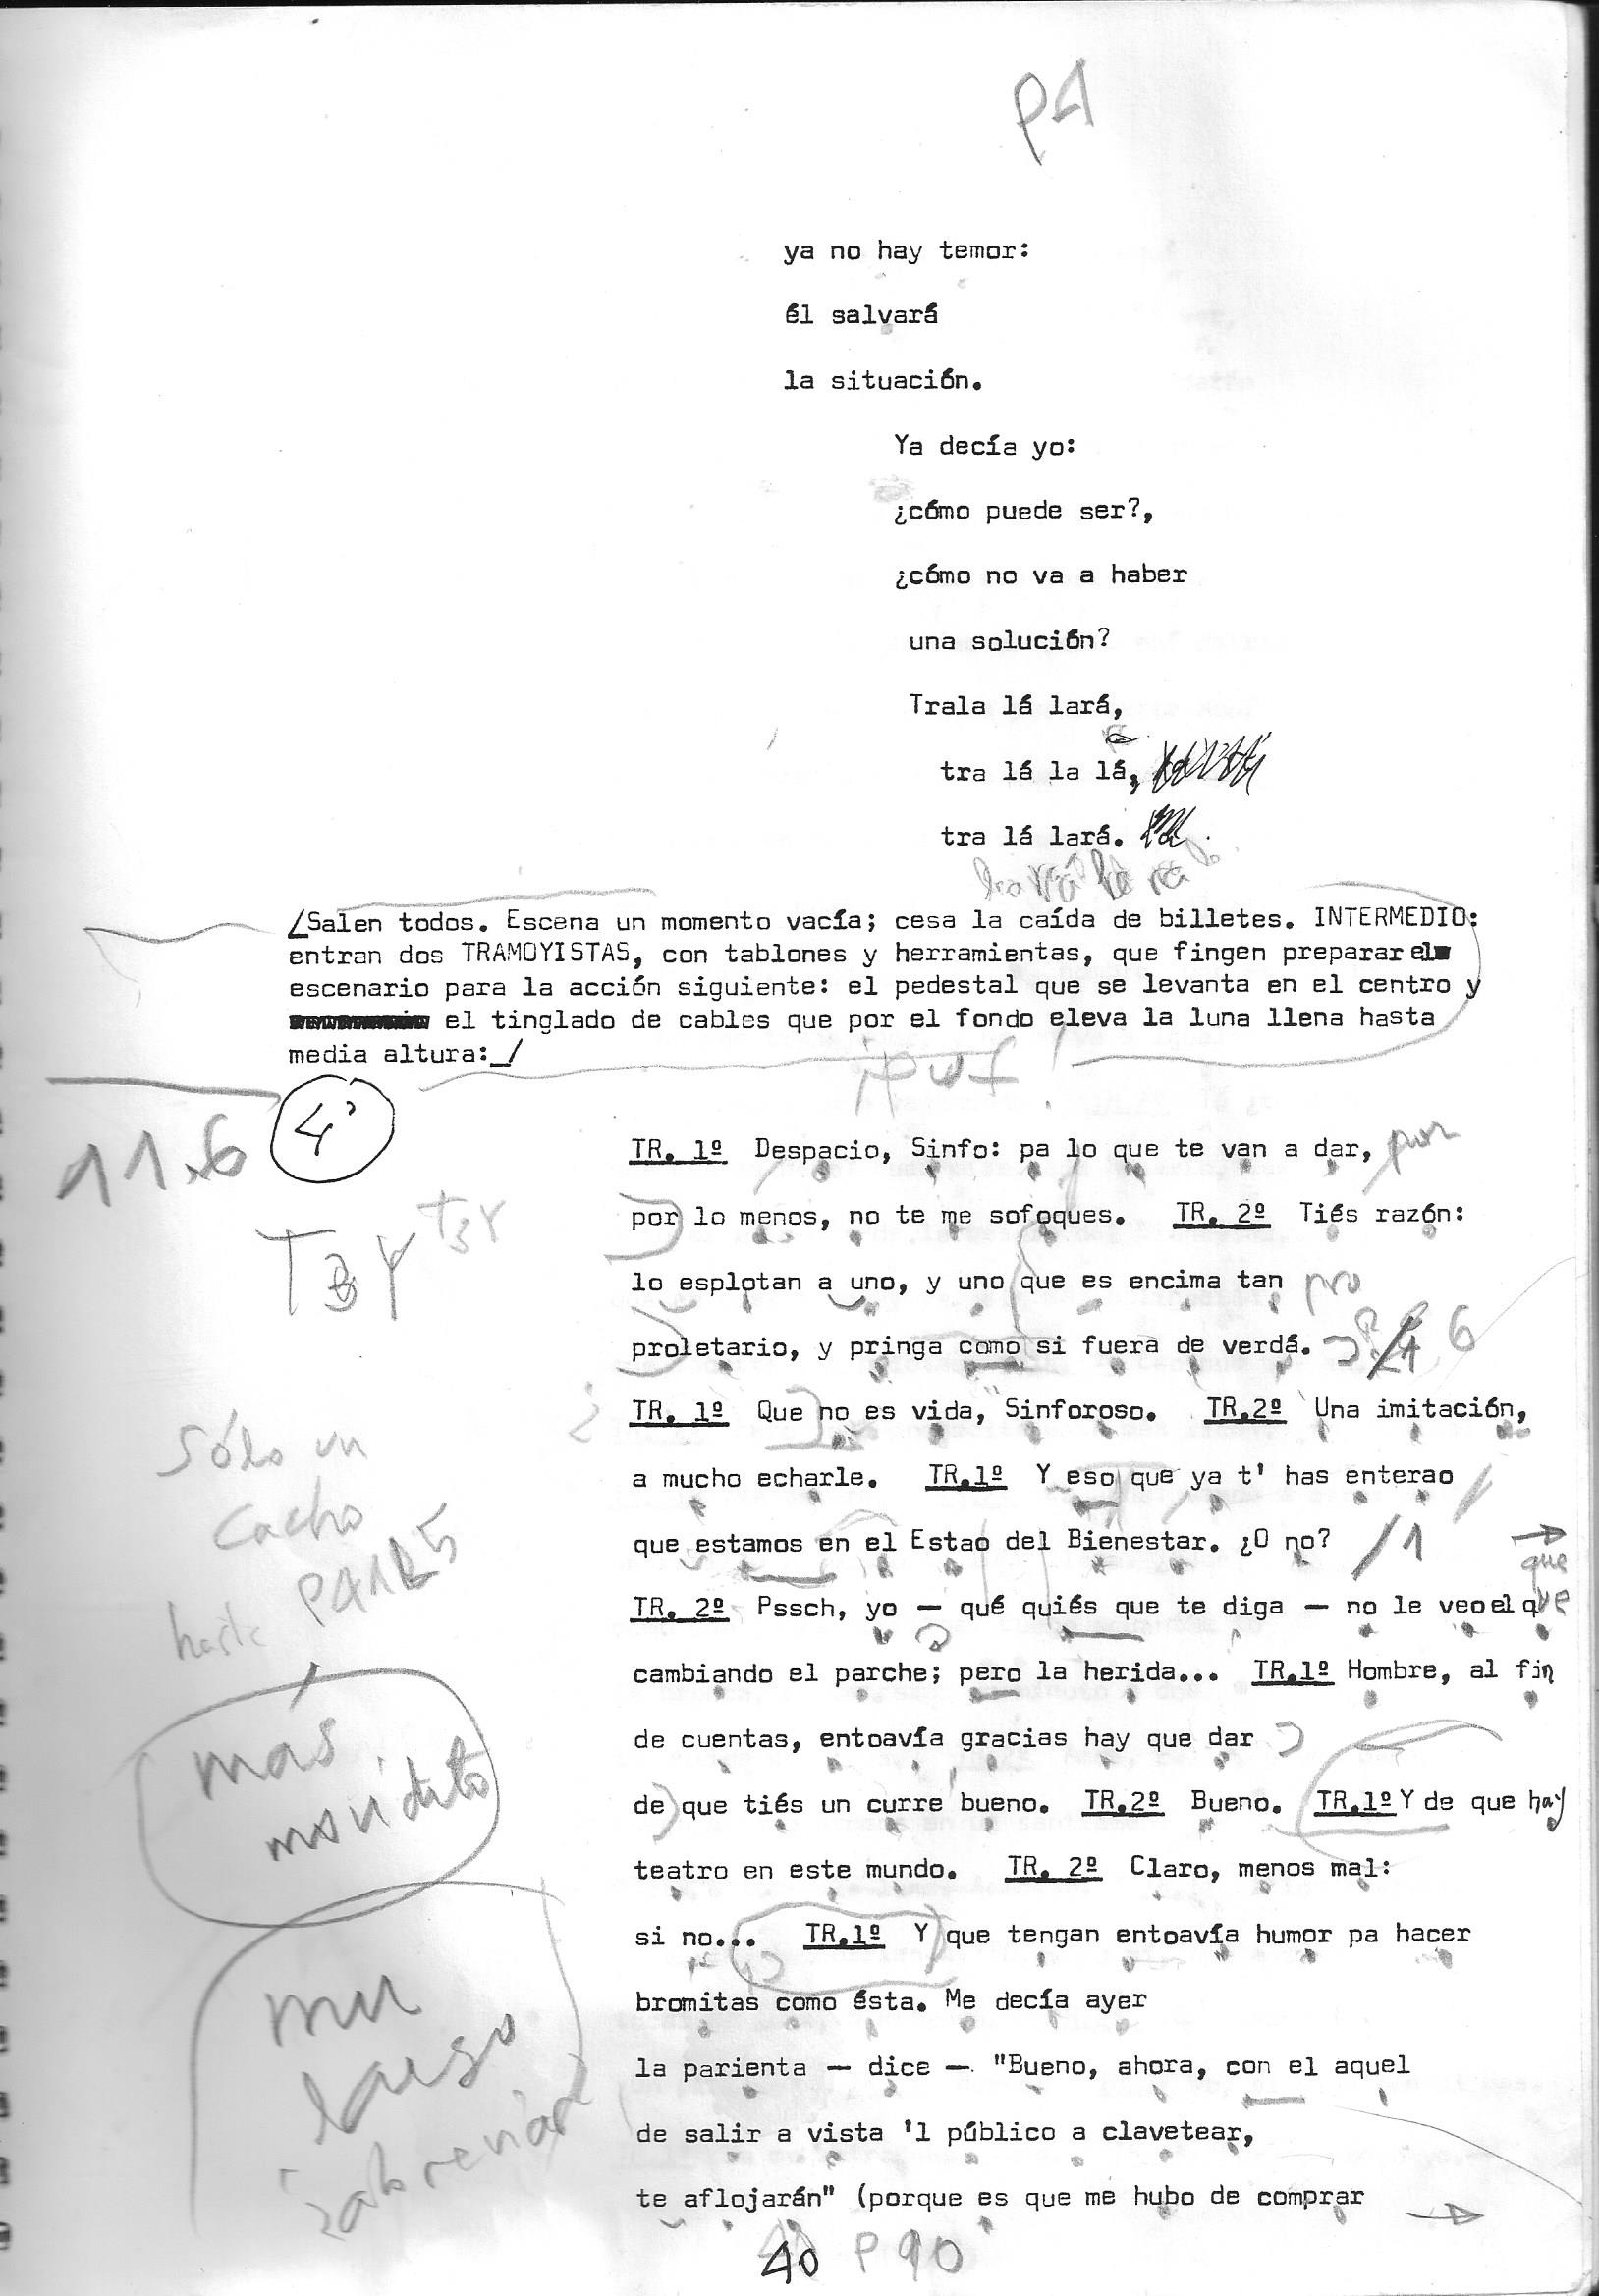 P4
ya no hay temor:
él salvará
la situación.
Ya decía yo:
¿cómo puede ser?,
¿cómo no va a haber
una solución?
Trala lá lará,
tra lá la lá,
tra lá lará.
/Salen todos. Escena un momento vacía; cesa la caída de billetes. INTERMEDIO:
entran dos TRAMOYISTAS, con tablones y herramientas, que fingen preparar el
escenario para la acción siguiente: el pedestal que se levanta en el centro y
el tinglado de cables que por el fondo eleva la luna llena hasta
media altura:_/
11.6 4'
TR. 1º Despacio, Sinfo: pa lo que te van a dar, por
por lo menos, no te me sofoques. TR. 2º Tiés razón:
lo esplotan a uno, y uno que es encima tan pro
proletario, y pringa como si fuera de verdá. 6
TR. 1º Que no es vida, Sinforoso. TR.2º Una imitación,
a mucho echarle. TR.1º Y eso que ya t' has enterao
que estamos en el Estao del Bienestar. ¿O no? /1
que
TR. 2º Pssch, yo — qué quiés que te diga — no le veo el que
cambiando el parche; pero la herida... TR.1º Hombre, al fin
de cuentas, entoavía gracias hay que dar
de que tiés un curre bueno. TR.2º Bueno. TR.1º Y de que hay
teatro en este mundo. TR. 2º Claro, menos mal:
si no... TR.1º Y que tengan entoavía humor pa hacer
bromitas como ésta. Me decía ayer
la parienta — dice — "Bueno, ahora, con el aquel
de salir a vista 'l público a clavetear,
te aflojarán" (porque es que me hubo de comprar
Sólo un
cacho
hasta
más
movidito
mu
largo
abreviar
40 P90